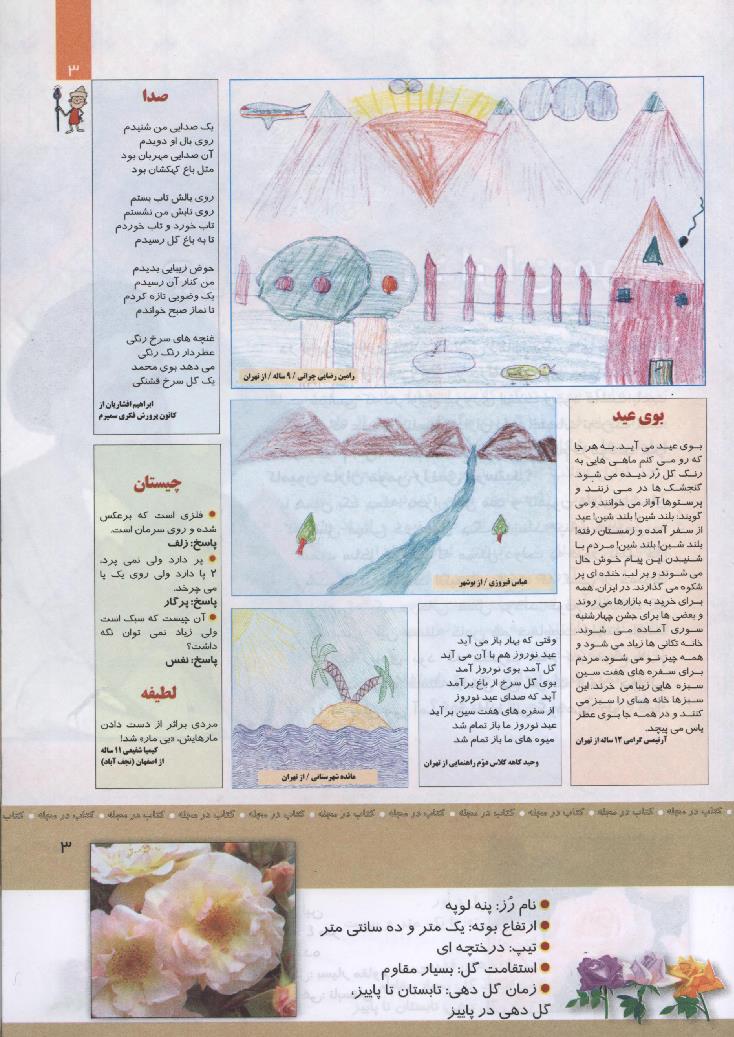 ۳
صدا
یک صدایی من شنیدم
روی بال او دویدم
آن صدایی مهربان بود
مثل باغ کهکشان بود
روی بالش تاب بستم
روی تابش من نشستم
تاب خورد و تاب خوردم
تا به باغ گل رسیدم
حوض زیبایی بدیدم
من کنار آن رسیدم
یک وضویی تازه کردم
تا نماز صبح خواندم
غنچه های سرخ رنگی
عطردار رنگ رنگی
می دهد بوی محمد
یک گل سرخ قشنگی
ابراهیم افشاریان از
کانون پرورش فکری سمیرم
رامین رضایی چراتی / ۹ ساله / از تهران
بوی عید
بوی عید می آید. به هر جا
که رو می کنم ماهی هایی به
رنگ گل رُز دیده می شود.
گنجشک ها در می زنند و
پرستوها آواز می خوانند و می
گویند: بلند شین! بلند شین! عید
از سفر آمده و زمستان رفته!
بلند شین! بلند شین! مردم با
شنیدن این پیام خوش حال
می شوند و بر لب، خنده ای پر
شکوه می گذارند. در ایران، همه
برای خرید به بازارها می روند
و بعضی ها برای جشن چهارشنبه
سوری آماده می شوند.
خانه تکانی ها زیاد می شود و
همه چیز نو می شود. مردم
برای سفره های هفت سین
سبزه هایی زیبا می خرند. این
سبزها خانه هسای را سبز می
کنند و در همه جا بوی عطر
یاس می پیچد.
آرتیمس گرامی ۱۲ ساله از تهران
عباس فیروزی / از بوشهر
چیستان
فلزی است که برعکس
شده و روی سرمان است.
پاسخ: زلف
پر دارد ولی نمی پرد.
۲ پا دارد ولی روی یک پا
می چرخد.
پاسخ: پرگار
آن چیست که سبک است
ولی زیاد نمی توان نگه
داشت؟
پاسخ: نفس
لطیفه
مردی براثر از دست دادن
مارهایش، «بی مار» شد!
کیمیا شفیعی ۱۱ ساله
از اصفهان (نجف آباد)
مائده شهرستانی / از تهران
وقتی که بهار باز می آید
عید نوروز هم با آن می آید
گل آمد بوی نوروز آمد
بوی گل سرخ از باغ برآمد
آید که صدای عید نوروز
از سفره های هفت سین بر آید
عید نوروز ما باز تمام شد
میوه های ما باز تمام شد
وحید کاهه کلاس دوّم راهنمایی از تهران
کتاب در مجله • کتاب در مجله • کتاب در مجله • کتاب در مجله • کتاب در مجله • کتاب در مجله • کتاب در مجله • کتاب در مجله • کتاب در مجله • کتاب در مجله • کتاب
۳
نام رُز: پنه لوپه
ارتفاع بوته: یک متر و ده سانتی متر
تیپ: درختچه ای
استقامت گل: بسیار مقاوم
زمان گل دهی: تابستان تا پاییز،
گل دهی در پاییز